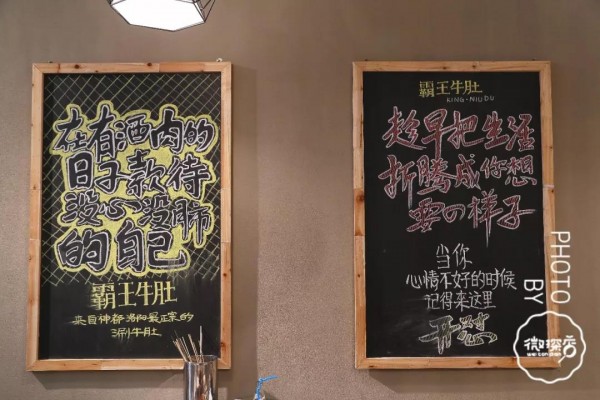 在有酒肉的
日子款待
没心没肺
的自己
霸王牛肚
来自神都洛阳最正宗的
涮牛肚
霸王牛肚
KING·NIUDU
趁早把生活
折腾成你想
要の样子
当你
心情不好的时候
记得来这里
开怼
PHOTO BY
微探店